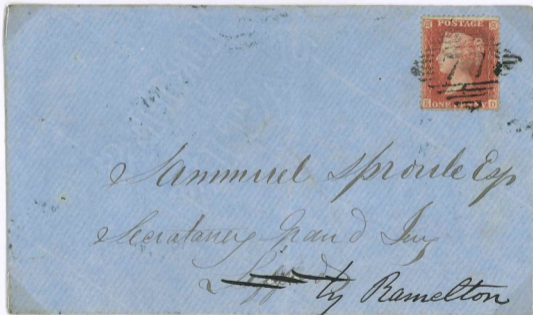 POSTAGE
ONE PENNY
77
Sammuel Sproule Esq
Secrataney Grand Jury
by Ramelton